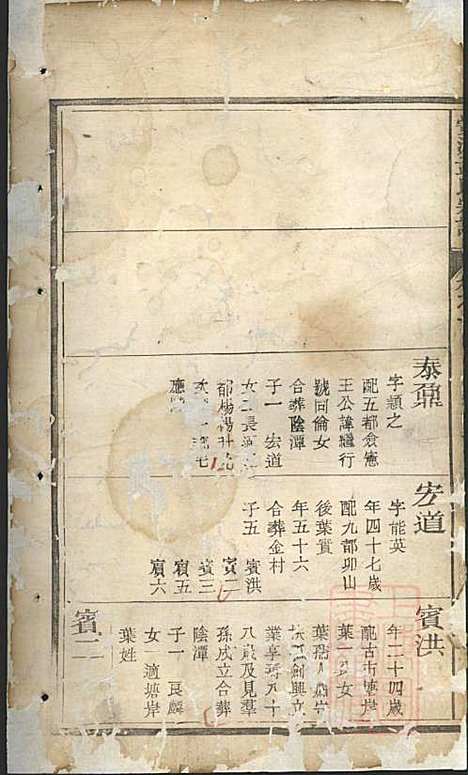 泰鼐
字穎之
配五都僉憲
王公諱繼行
號同倫女
合葬陰潭
子一 宏道
女二長適
都楊楊
宏道
字能英
年四十七歲
配九都卯山
後葉賓
年五十六
合葬金村
子五 賓洪
賓二
賓三
賓五
賓六
賓洪
年二十四歲
配古市連岸
葉一 女
葉
創興立
業享壽九十
八歲及見羣
孫成立合葬
陰潭
子一 良麟
女一適塘岸
葉姓
賓二